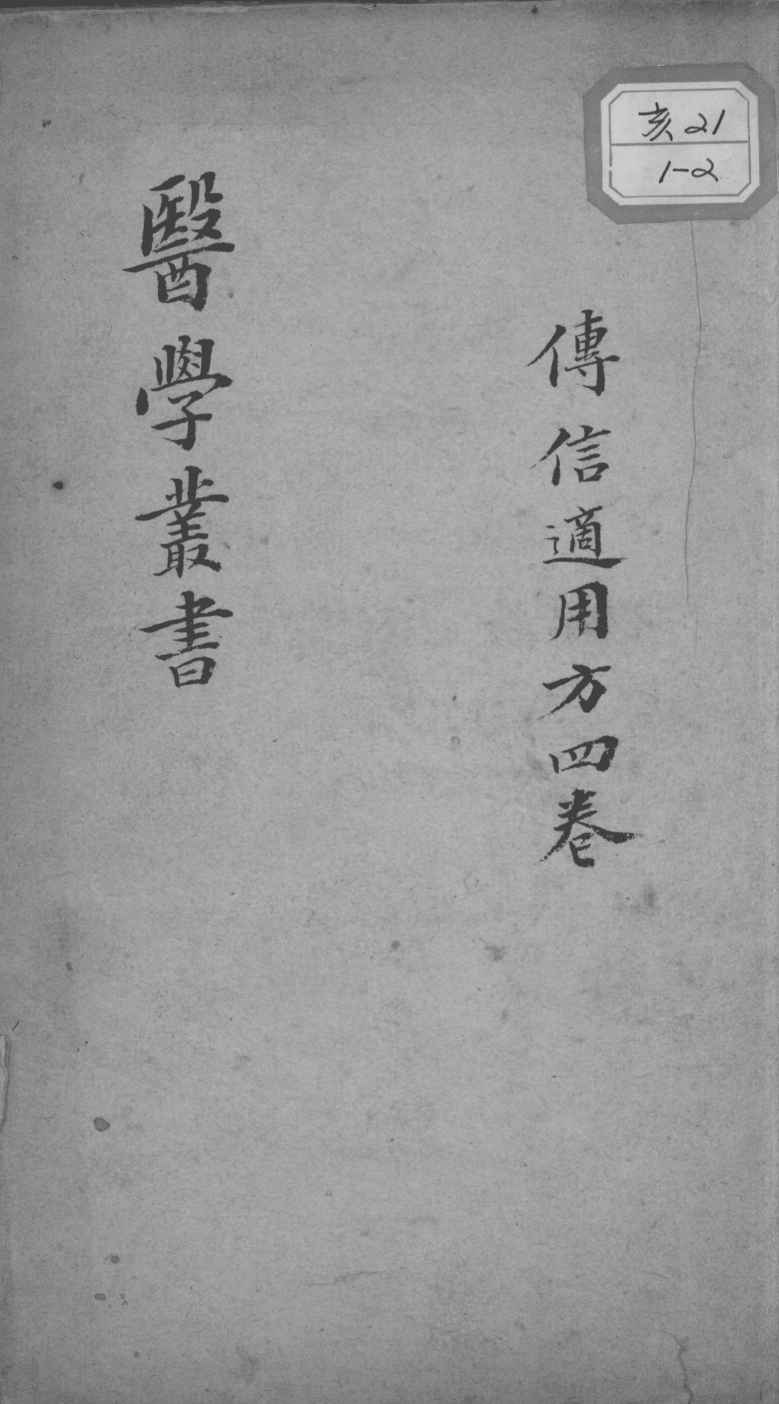 亥21
1-2
傳信適用方四卷
醫學叢書